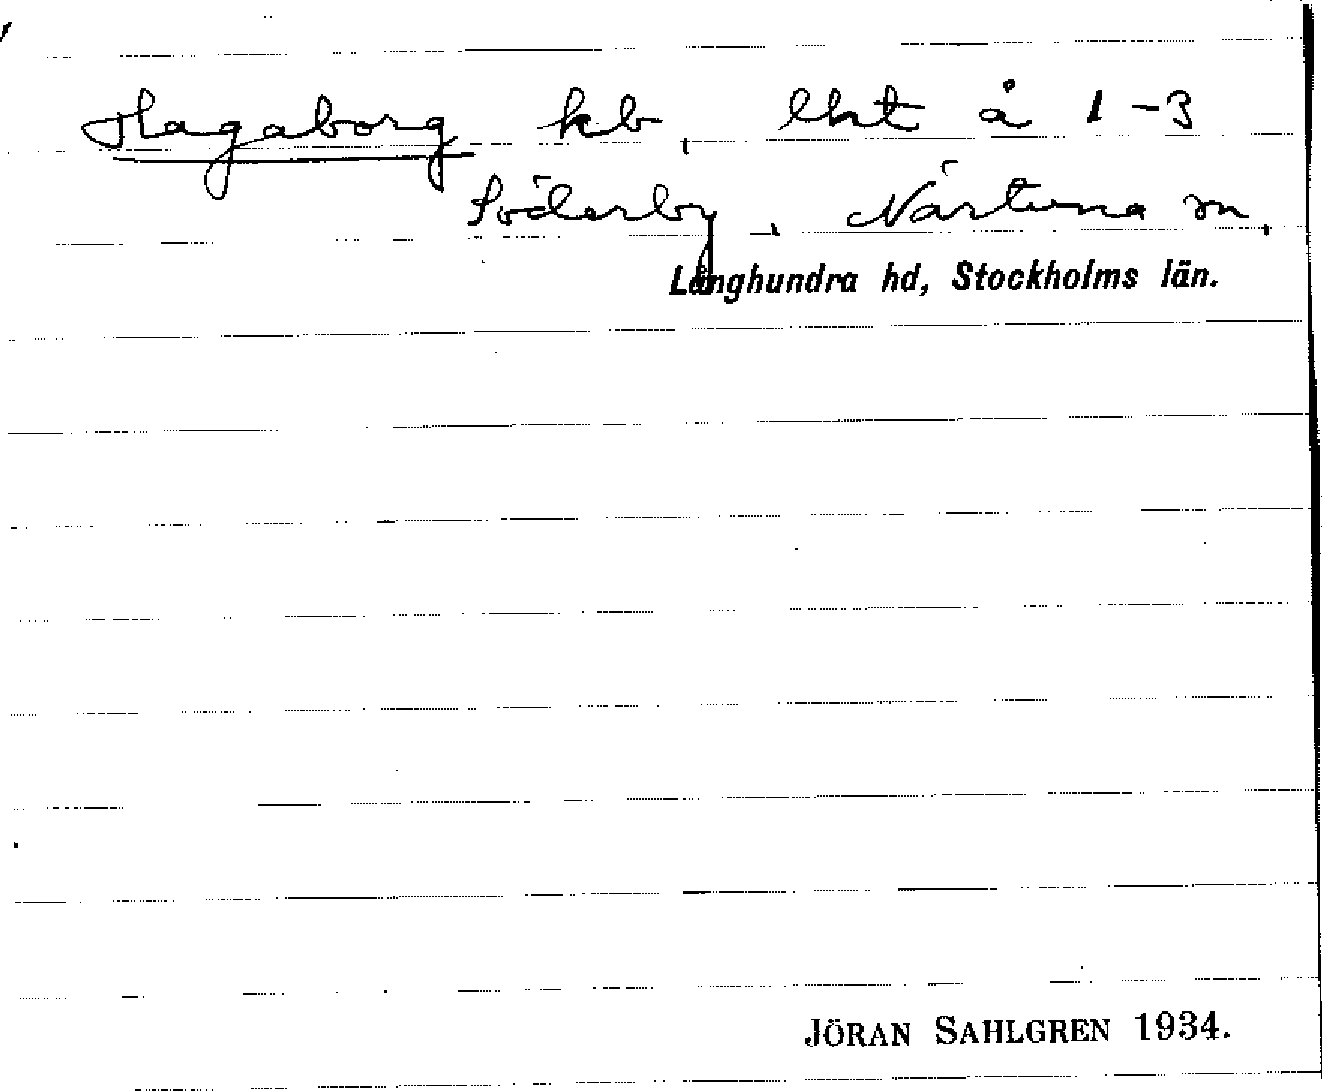 Hagaborg kb, lht å 1-3
Söderby, Närtuna sn,
Långhundra hd, Stockholms län.
JÖRAN SAHLGREN 1934.